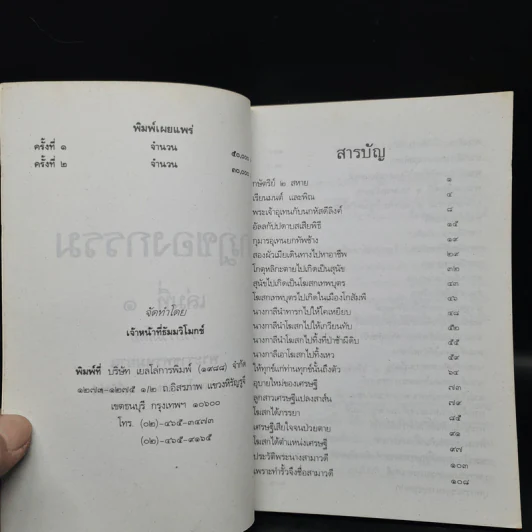 พิมพ์เผยแพร่
ครั้งที่ ๑ จำนวน ๕๐,๐๐๐
ครั้งที่ ๒ จำนวน ๓๐,๐๐๐
กฎของกรรม
เล่มที่ ๑
จัดทำโดย
เจ้าหน้าที่ธัมมวิโมกข์
พิมพ์ที่ บริษัท เยลโล่การพิมพ์ (๑๙๘๘) จำกัด
๑๒๗๓-๑๒๗๕ ๑/๒ ถ.อิสรภาพ แขวงหิรัญรูจี
เขตธนบุรี กรุงเทพฯ ๑๐๖๐๐
โทร. (๐๒)-๔๖๕-๓๔๗๓
(๐๒)-๔๖๕-๙๑๖๕
สารบัญ
กษัตริย์ ๒ สหาย ๑
เรียนมนต์ และพิณ ๔
พระเจ้าอุเทนกับนกหัสดีลิงค์ ๘
อัลลกัปปดาบสเสียพิธี ๑๕
กุมารอุเทนยกทัพช้าง ๑๙
สองผัวเมียเดินทางไปหาอาชีพ ๒๙
โกตุหลิกะตายไปเกิดเป็นสุนัข ๓๒
สุนัขไปเกิดเป็นโฆสกเทพบุตร ๔๐
โฆสกเทพบุตรไปเกิดในเมืองโกสัมพี ๔๖
นางกาลีนำทารกไปให้โคเหยียบ ๔๘
นางกาลีนำโฆสกไปให้เกวียนทับ ๕๒
นางกาลีนำโฆสกไปทิ้งที่ป่าช้าผีดิบ ๕๕
นางกาลีเอาโฆสกไปทิ้งเหว ๕๙
ให้ทุกข์แก่ท่านทุกข์นั้นถึงตัว ๖๔
อุบายใหม่ของเศรษฐี ๗๓
ลูกสาวเศรษฐีแปลงสาส์น ๗๙
โฆสกได้ภรรยา ๘๕
เศรษฐีเสียใจจนป่วยตาย ๙๑
โฆสกได้ตำแหน่งเศรษฐี ๙๗
ประวัติพระนางสามาวดี ๑๐๓
เพราะทำรั้วจึงชื่อสามาวดี ๑๐๘